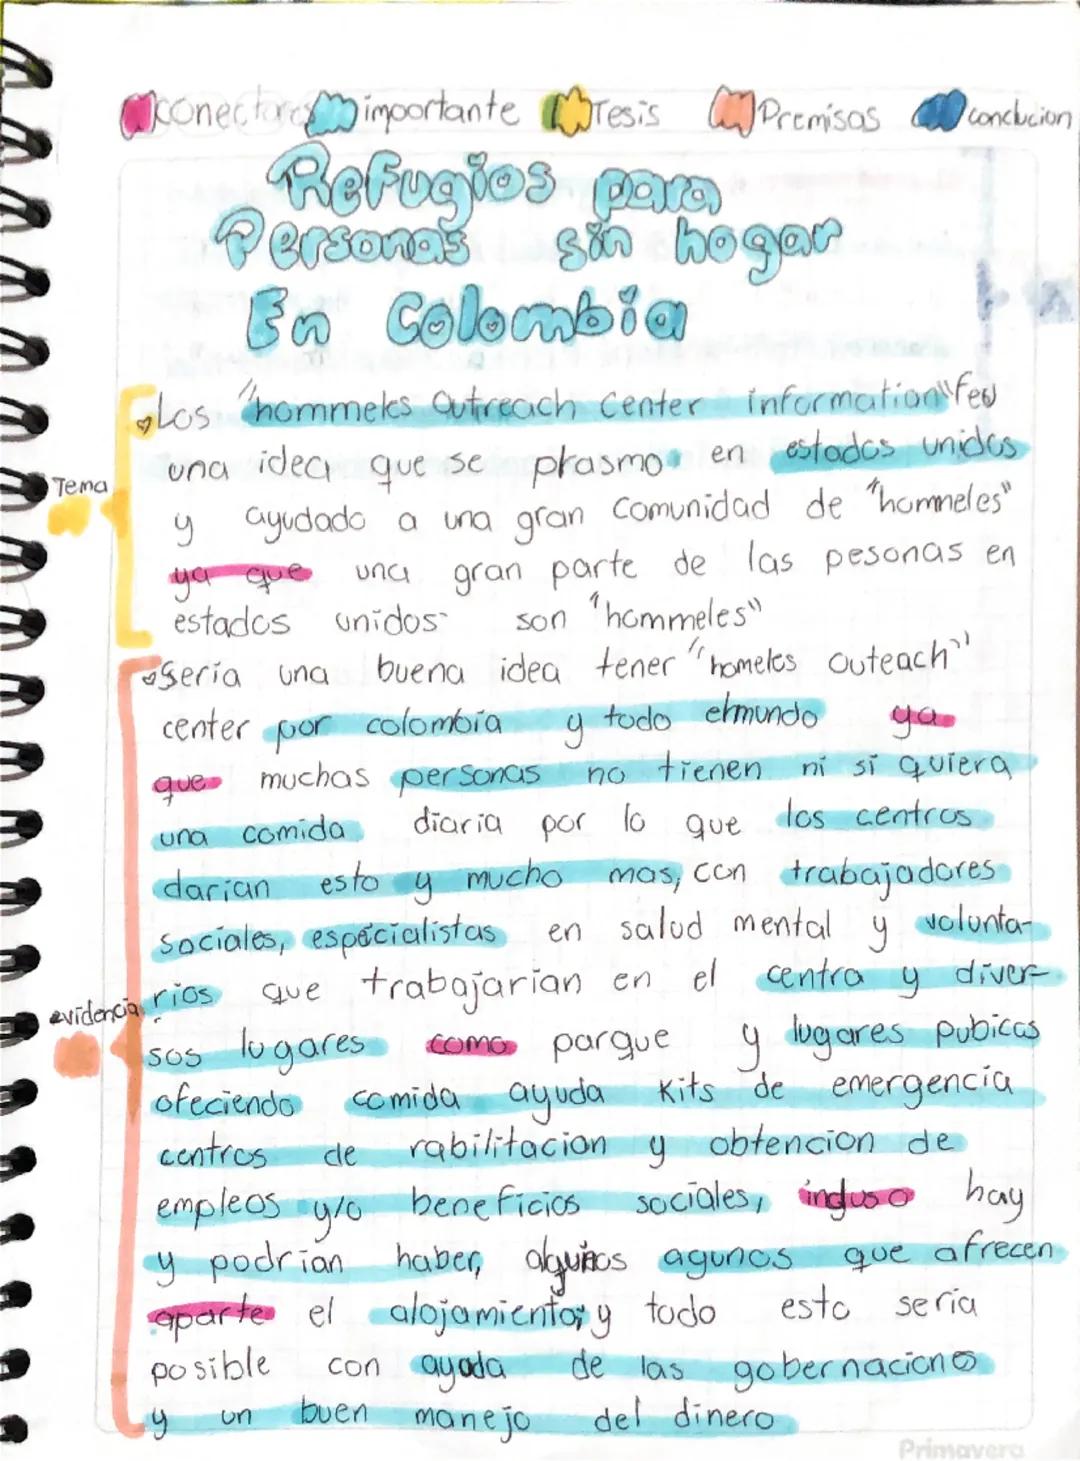 conectores importante Tesis Premisas conclucion
Refugios para
Personas sin hogar
En Colombia
Los "hommeles Outreach Center information" feu
una idea que se plasmo en estados unidos
Tema
y ayudado a una gran comunidad de "hommeles"
ya que una gran parte de las pesonas en
estados unidos son "hommeles"
Sería una buena idea tener "homeles outeach"
center por colombia y todo elmundo ya
que muchas personas no tienen ni si quiera
una comida diaria por lo que los centros
darian esto y mucho mas, con trabajadores
sociales, especialistas en salud mental y volunta-
rios que trabajarian en el centra y diver-
evidencia
sos lugares como parque y lugares pubicos
ofeciendo comida ayuda Kits de emergencia
centros de rabilitacion y obtencion de
empleos y/o beneficios sociales, incluso hay
y podrían haber, algunos agunos que afrecen
aparte el alojamiento; y todo esto sería
posible con ayuda de las gobernaciones
y un buen manejo del dinero
Primavera